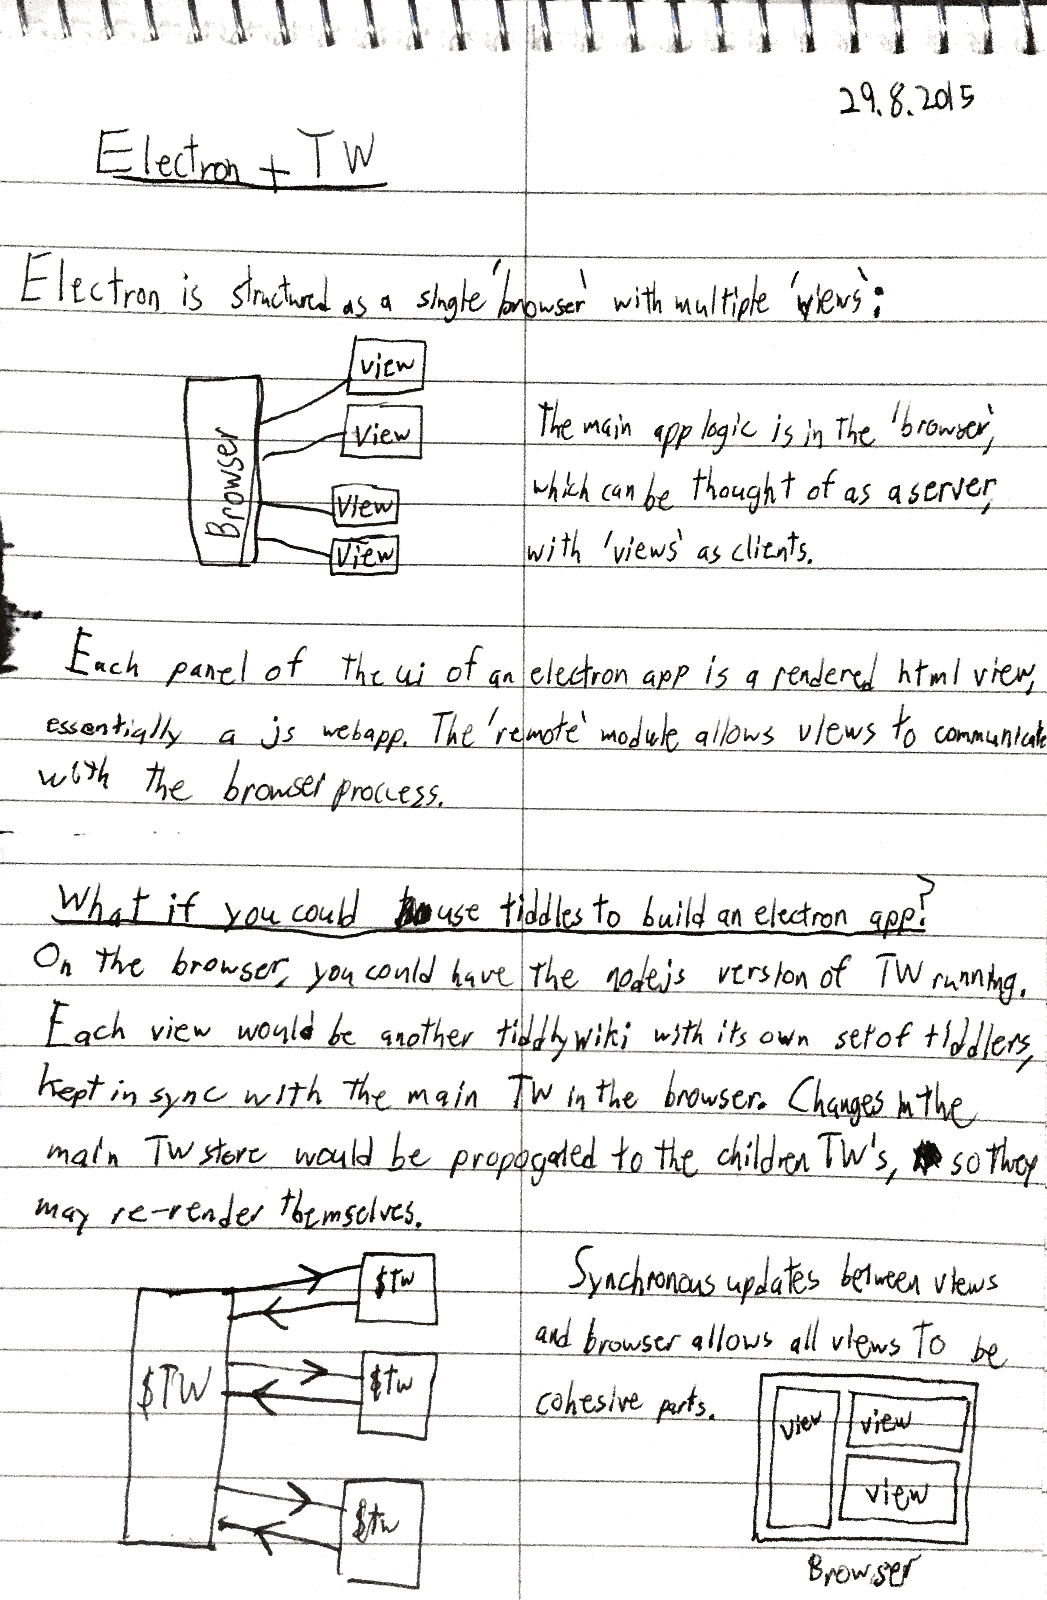 29.8.2015
Electron + TW
Electron is structured as a single 'browser' with multiple 'views':
view
view
view
view
Browser
The main app logic is in the 'browser',
which can be thought of as a server,
with 'views' as clients.
Each panel of the ui of an electron app is a rendered html view,
essentially a js webapp. The 'remote' module allows views to communicate
with the browser proccess.
What if you could use tiddles to build an electron app?
On the browser, you could have the nodejs version of TW running.
Each view would be another tiddlywiki with its own set of tiddlers,
kept in sync with the main TW in the browser. Changes in the
main TW store would be propogated to the children TW's, so they
may re-render themselves.
$TW
$TW
$TW
$TW
Synchronous updates between views
and browser allows all views to be
cohesive parts.
view
view
view
Browser